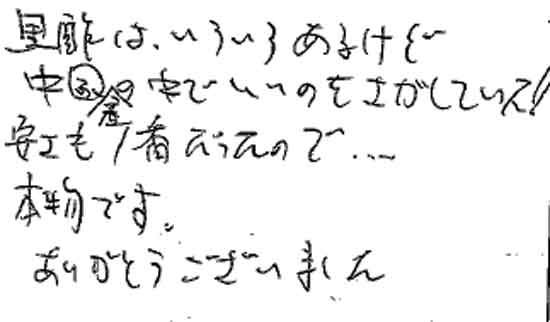 黒酢は、いろいろあるけど
中国産の中でいいのをさがしていた!
安さも1番だったので....
本物です。
ありがとうございました